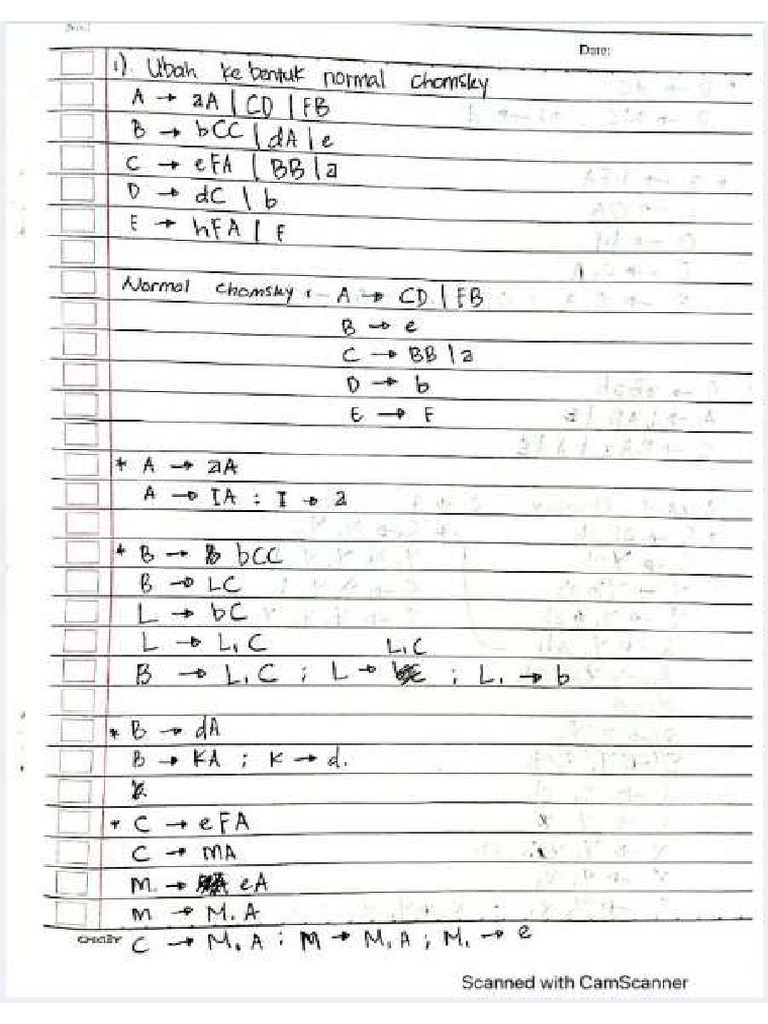 Date:
1). Ubah ke bentuk normal chomsky
A → aA | CD | FB
B → bCC | dA | e
C → eFA | BB | a
D → dC | b
E → hFA | F
Normal chomsky : - A → CD | FB
B → e
C → BB | a
D → b
E → F
* A → aA
A → IA : I → a
* B → bCC
B → LC
L → bC
L → L1 C
L1C
B → L1 C ; L → ; L1 → b
* B → dA
B → KA ; K → d.
* C → eFA
C → MA
M → eA
M → M1 A
C → M1 A ; M → M1 A ; M1 → e
Scanned with CamScanner